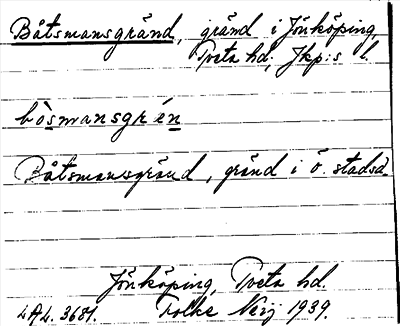 Båtsmansgränd, gränd i Jönköping,
Tveta hd, Jkp:s l.
bòsmansgrén
Båtsmansgränd, gränd i ö. stadsd.
Jönköping, Tveta hd.
Folke Neij 1939.
3681.